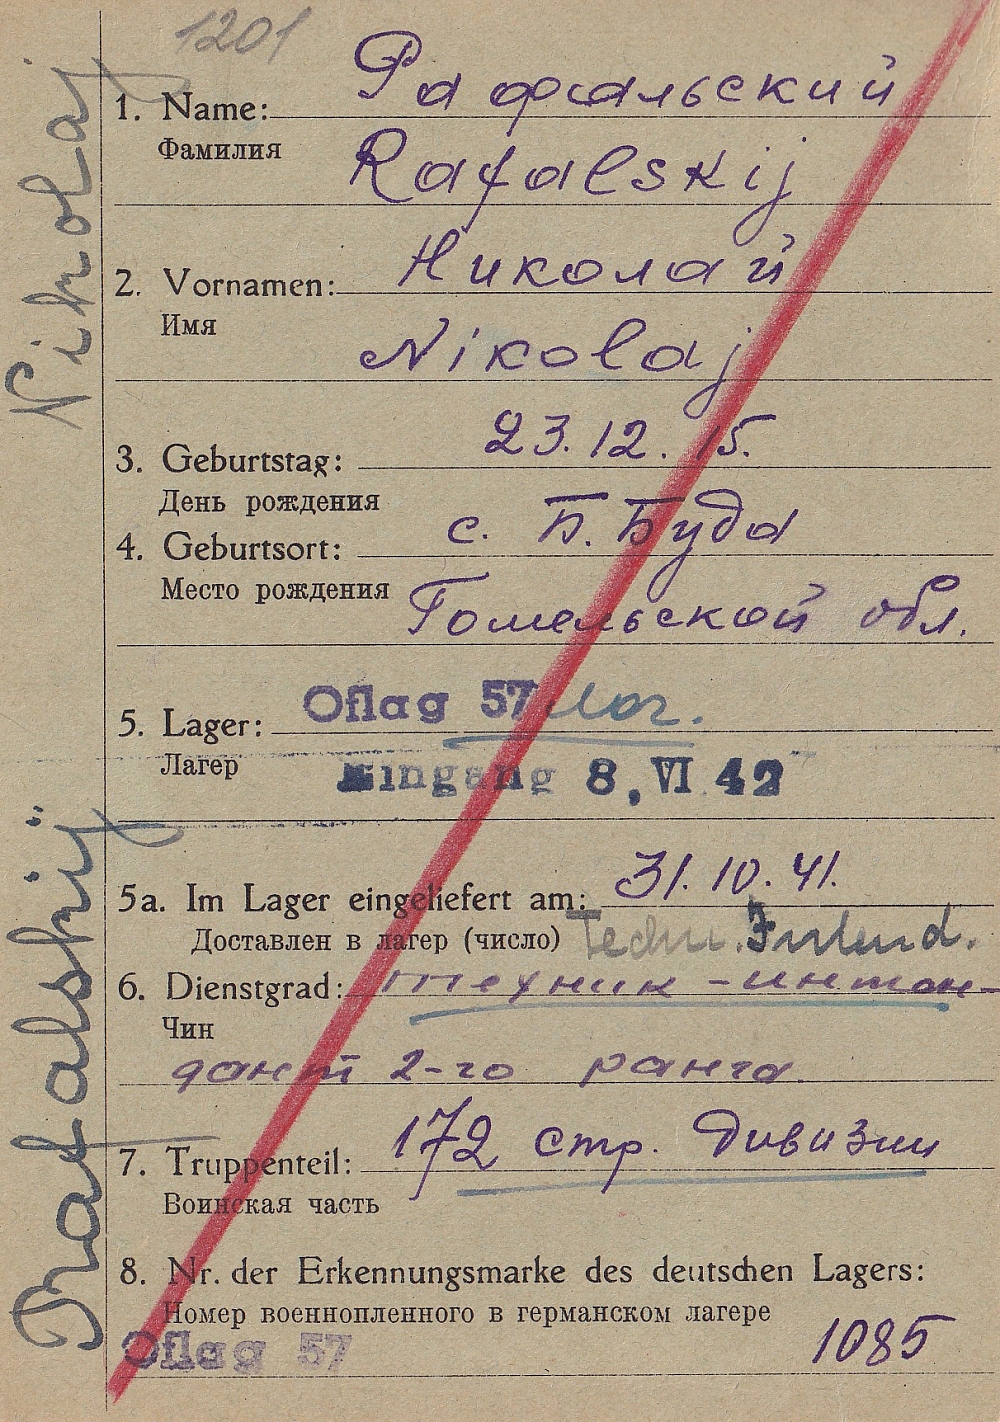 1201
Рафальский
1. Name:
Фамилия
Rafalskij
Николай
2. Vornamen:
Имя
Nikolaj
23.12.15.
3. Geburtstag:
День рождения
с. Б. Буда
4. Geburtsort:
Место рождения
Гомельской обл.
Oflag 57
5. Lager:
Лагер
Eingang 8. VI 42
31.10.41.
5a. Im Lager eingeliefert am:
Доставлен в лагер (число)
Techn. Intend.
6. Dienstgrad: техник-интен-
Чин
дант 2-го ранга
172 стр. дивизии
7. Truppenteil:
Воинская часть
8. Nr. der Erkennungsmarke des deutschen Lagers:
Номер военнопленного в германском лагере
Oflag 57
1085
Rafalskij Nikolaj